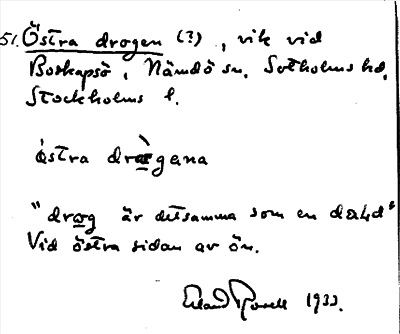 51. Östra drogen (?), vik vid
Boskapsö, Nämdö sn, Sotholms hd,
Stockholms l.
östra drægena
"dræg är detsamma som en dæld"
Vid östra sidan av ön.
Erland Rosell 1933.